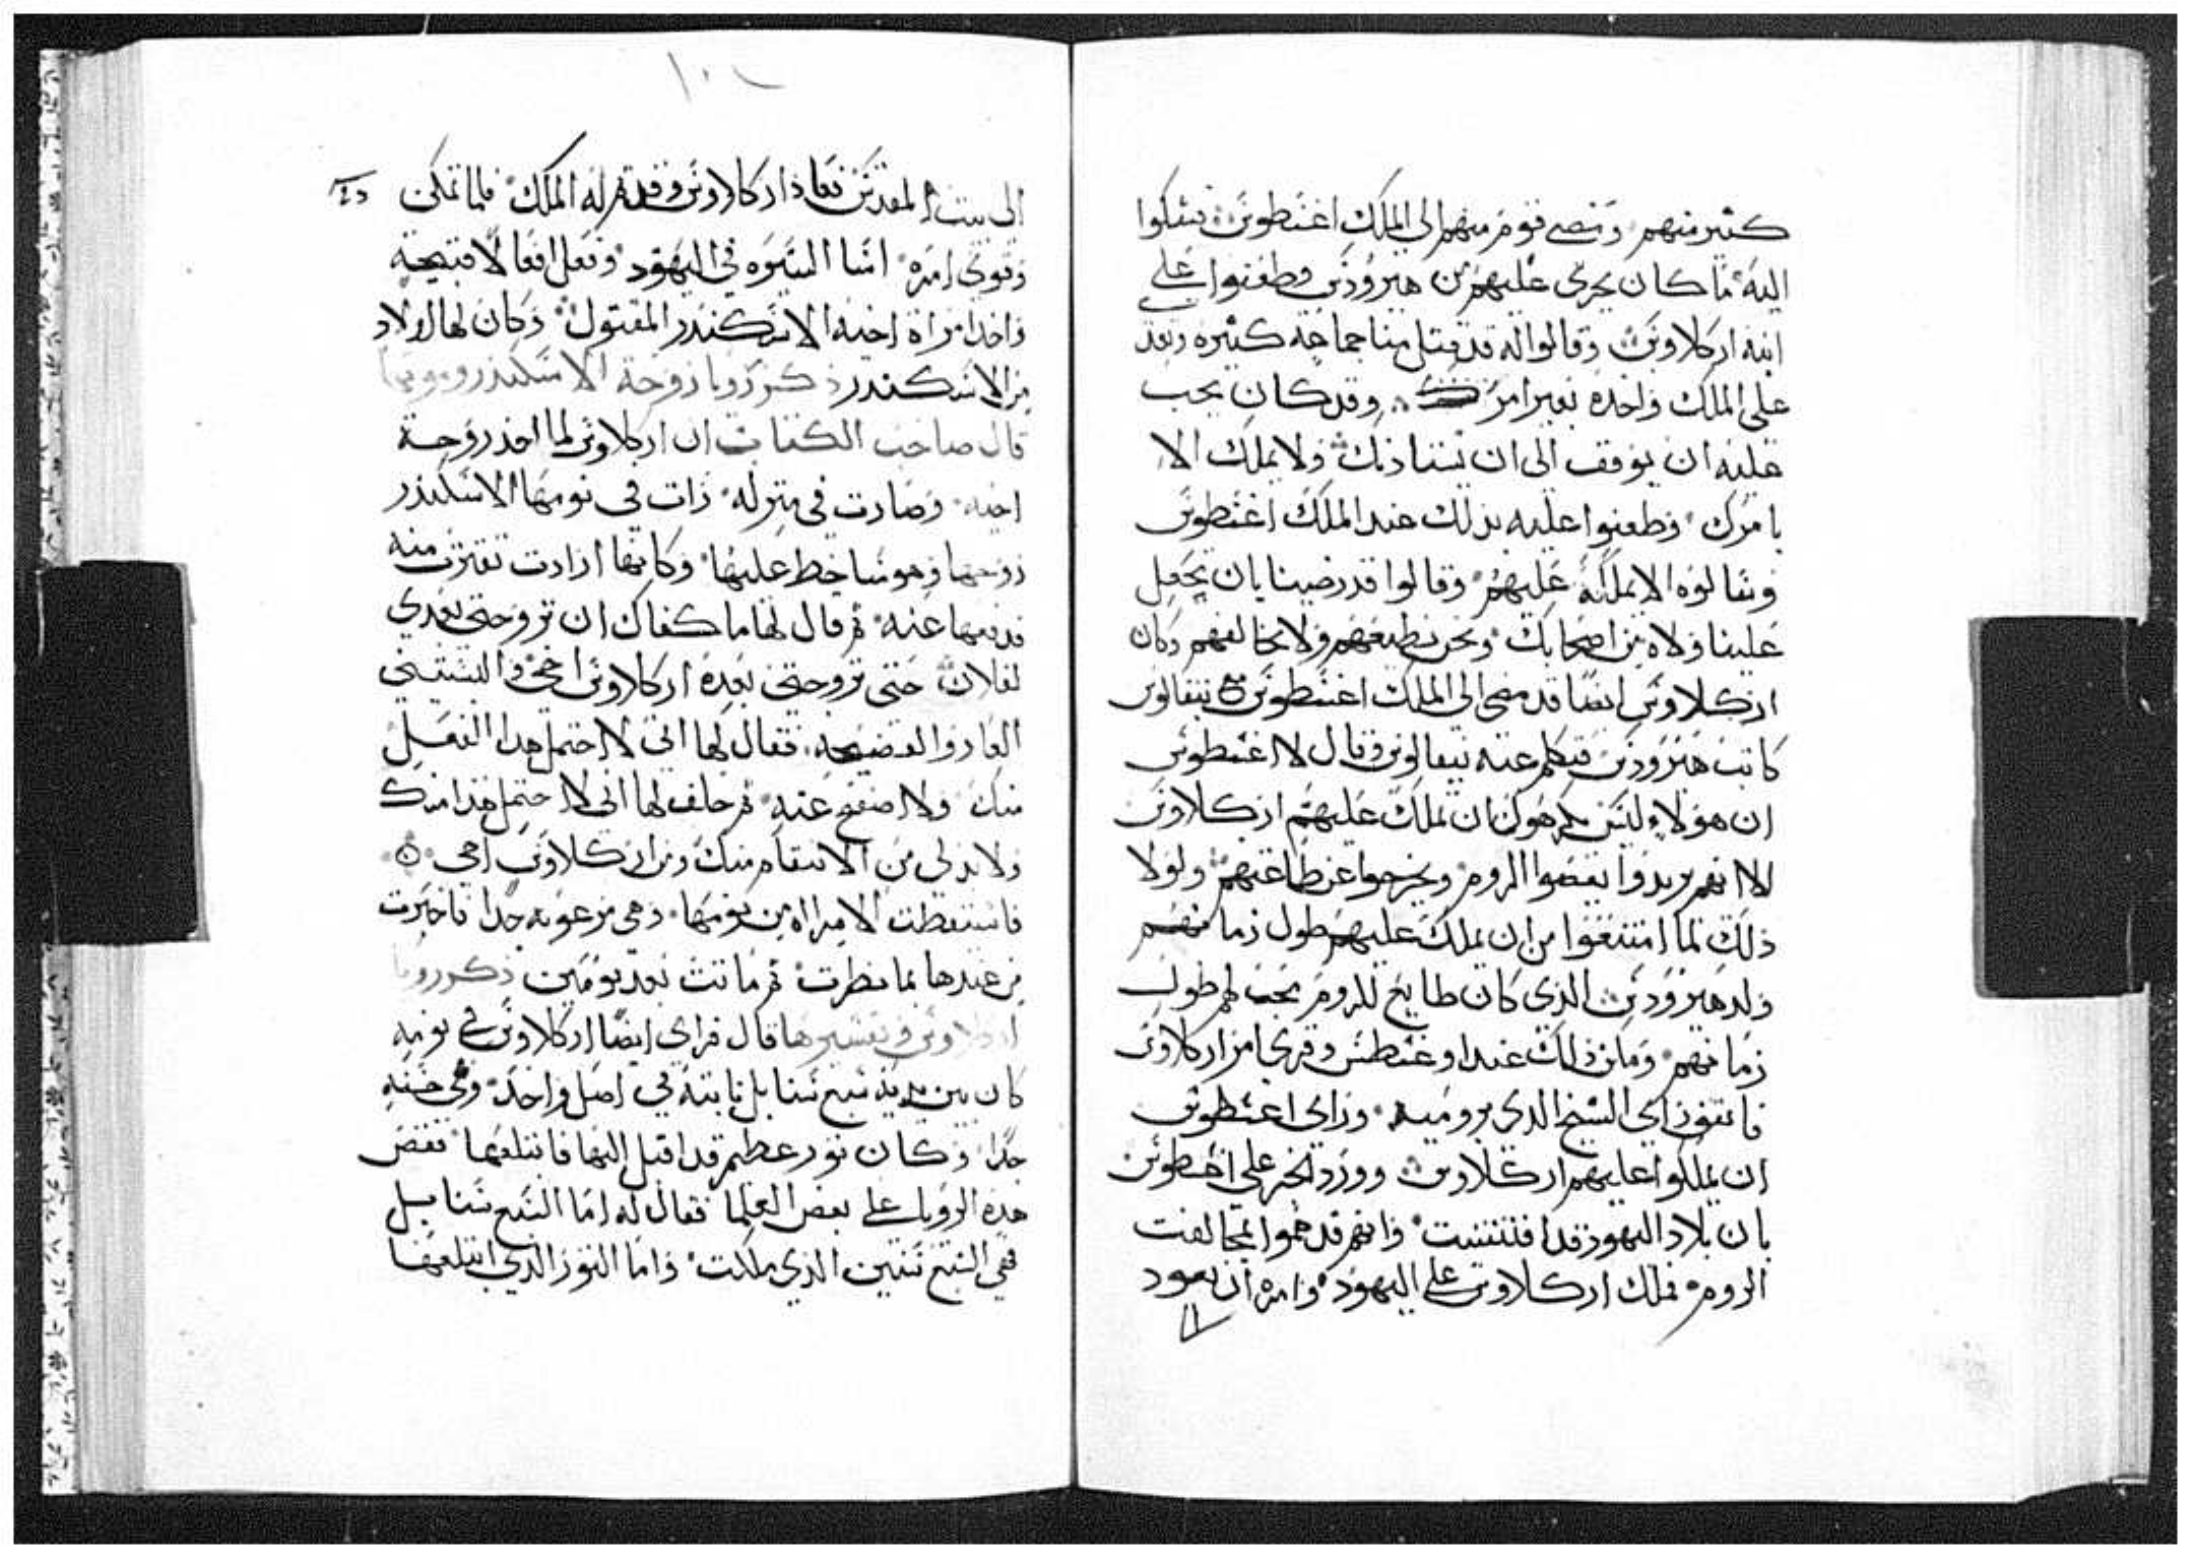 كثير منهم ومضى قوم منهم الى الملك اغسطوس يشكوا
اليه ما كان يجرى عليهم من هيرودس وطعنوا على
ابنه اركلاوس وقالوا له قد قتل منا جماعه كثيره وتعد
على الملك واخده بغير امر وقد كان يجب
عليه ان يوقف الى ان يستاذنك ولا يملك الا
بامرك وطعنوا عليه بذلك عند الملك اغسطوس
وسالوه الا يملكه عليهم وقالوا قد رضينا بان يجعل
علينا ولاه من اصحابك ونحن نطيعهم ولا نخالفهم وكان
اركلاوس ايضا قد مضى الى الملك اغسطوس نيقالوس
كاتب هيرودس فتكلم عنه نيقالوس وقال لاغسطوس
ان هولاء ليس يكرهوك ان يملك عليهم اركلاوس
الا انهم يريدوا يعصوا الروم ويخرجوا عن طاعتهم ولولا
ذلك لما امتنعوا من ان يملك عليهم طول زمانهم
ولد هيرودس الذى كان طايع للروم يحب لهم طول
زمانهم وما ذلك عند اوغسطس وقرى امر اركلاوس
فاتفق راى الشيخ الذى بروميه وراى اغسطوس
ان يملكوا عليهم اركلاوس وورد الخبر على اغسطوس
بان بلاد اليهود قد افتتنت وانهم قد هموا بمخالفت
الروم فملك اركلاوس على اليهود وامره ان يعود
الى بيت المقدس فعاد اركلاوس وقد تم له الملك فلما تمكن
وقوى امره اسا السيره فى اليهود وفعل افعالا قبيحه
واخد امراة اخيه الاسكندر المقتول وكان لها اولاد
من الاسكندر ذكر رويا زوجة الاسكندر وموتها
قال صاحب الكتاب ان اركلاوس لما اخذ زوجة
اخيه وصارت فى منزله رات فى نومها الاسكندر
زوجها وهو ساخط عليها وكانها ارادت تقترب منه
فدفعها عنه ثم قال لها ما كفاك ان تزوجتى بعدي
لفلان حتى تزوجتى بعده اركلاوس اخى والبستينى
العار والفضيحه فقال لها انى لا احتمل هدا الفعل
منك ولا اصفح عنه ثم حلف لها انى لا احتمل هدا منك
ولا بد لى من الانتقام منك ومن اركلاوس اخى
فاستيقظت الامراه من نومها وهى مرعوبه جدا فاخبرت
من عندها بما نظرت ثم ماتت بعد يومين ذكر رويا
اركلاوس وتفسيرها قال فراى ايضا اركلاوس فى نومه
كان بين يديه سبع سنابل نابته فى اصل واحد وهى حسنه
جدا وكان ثور عظيم قد اقبل اليها فابتلعها فقص
هده الرويا على بعض العلما فقال له اما السبع سنابل
فهى السبع سنين الذى ملكت واما الثور الذي ابتلعها